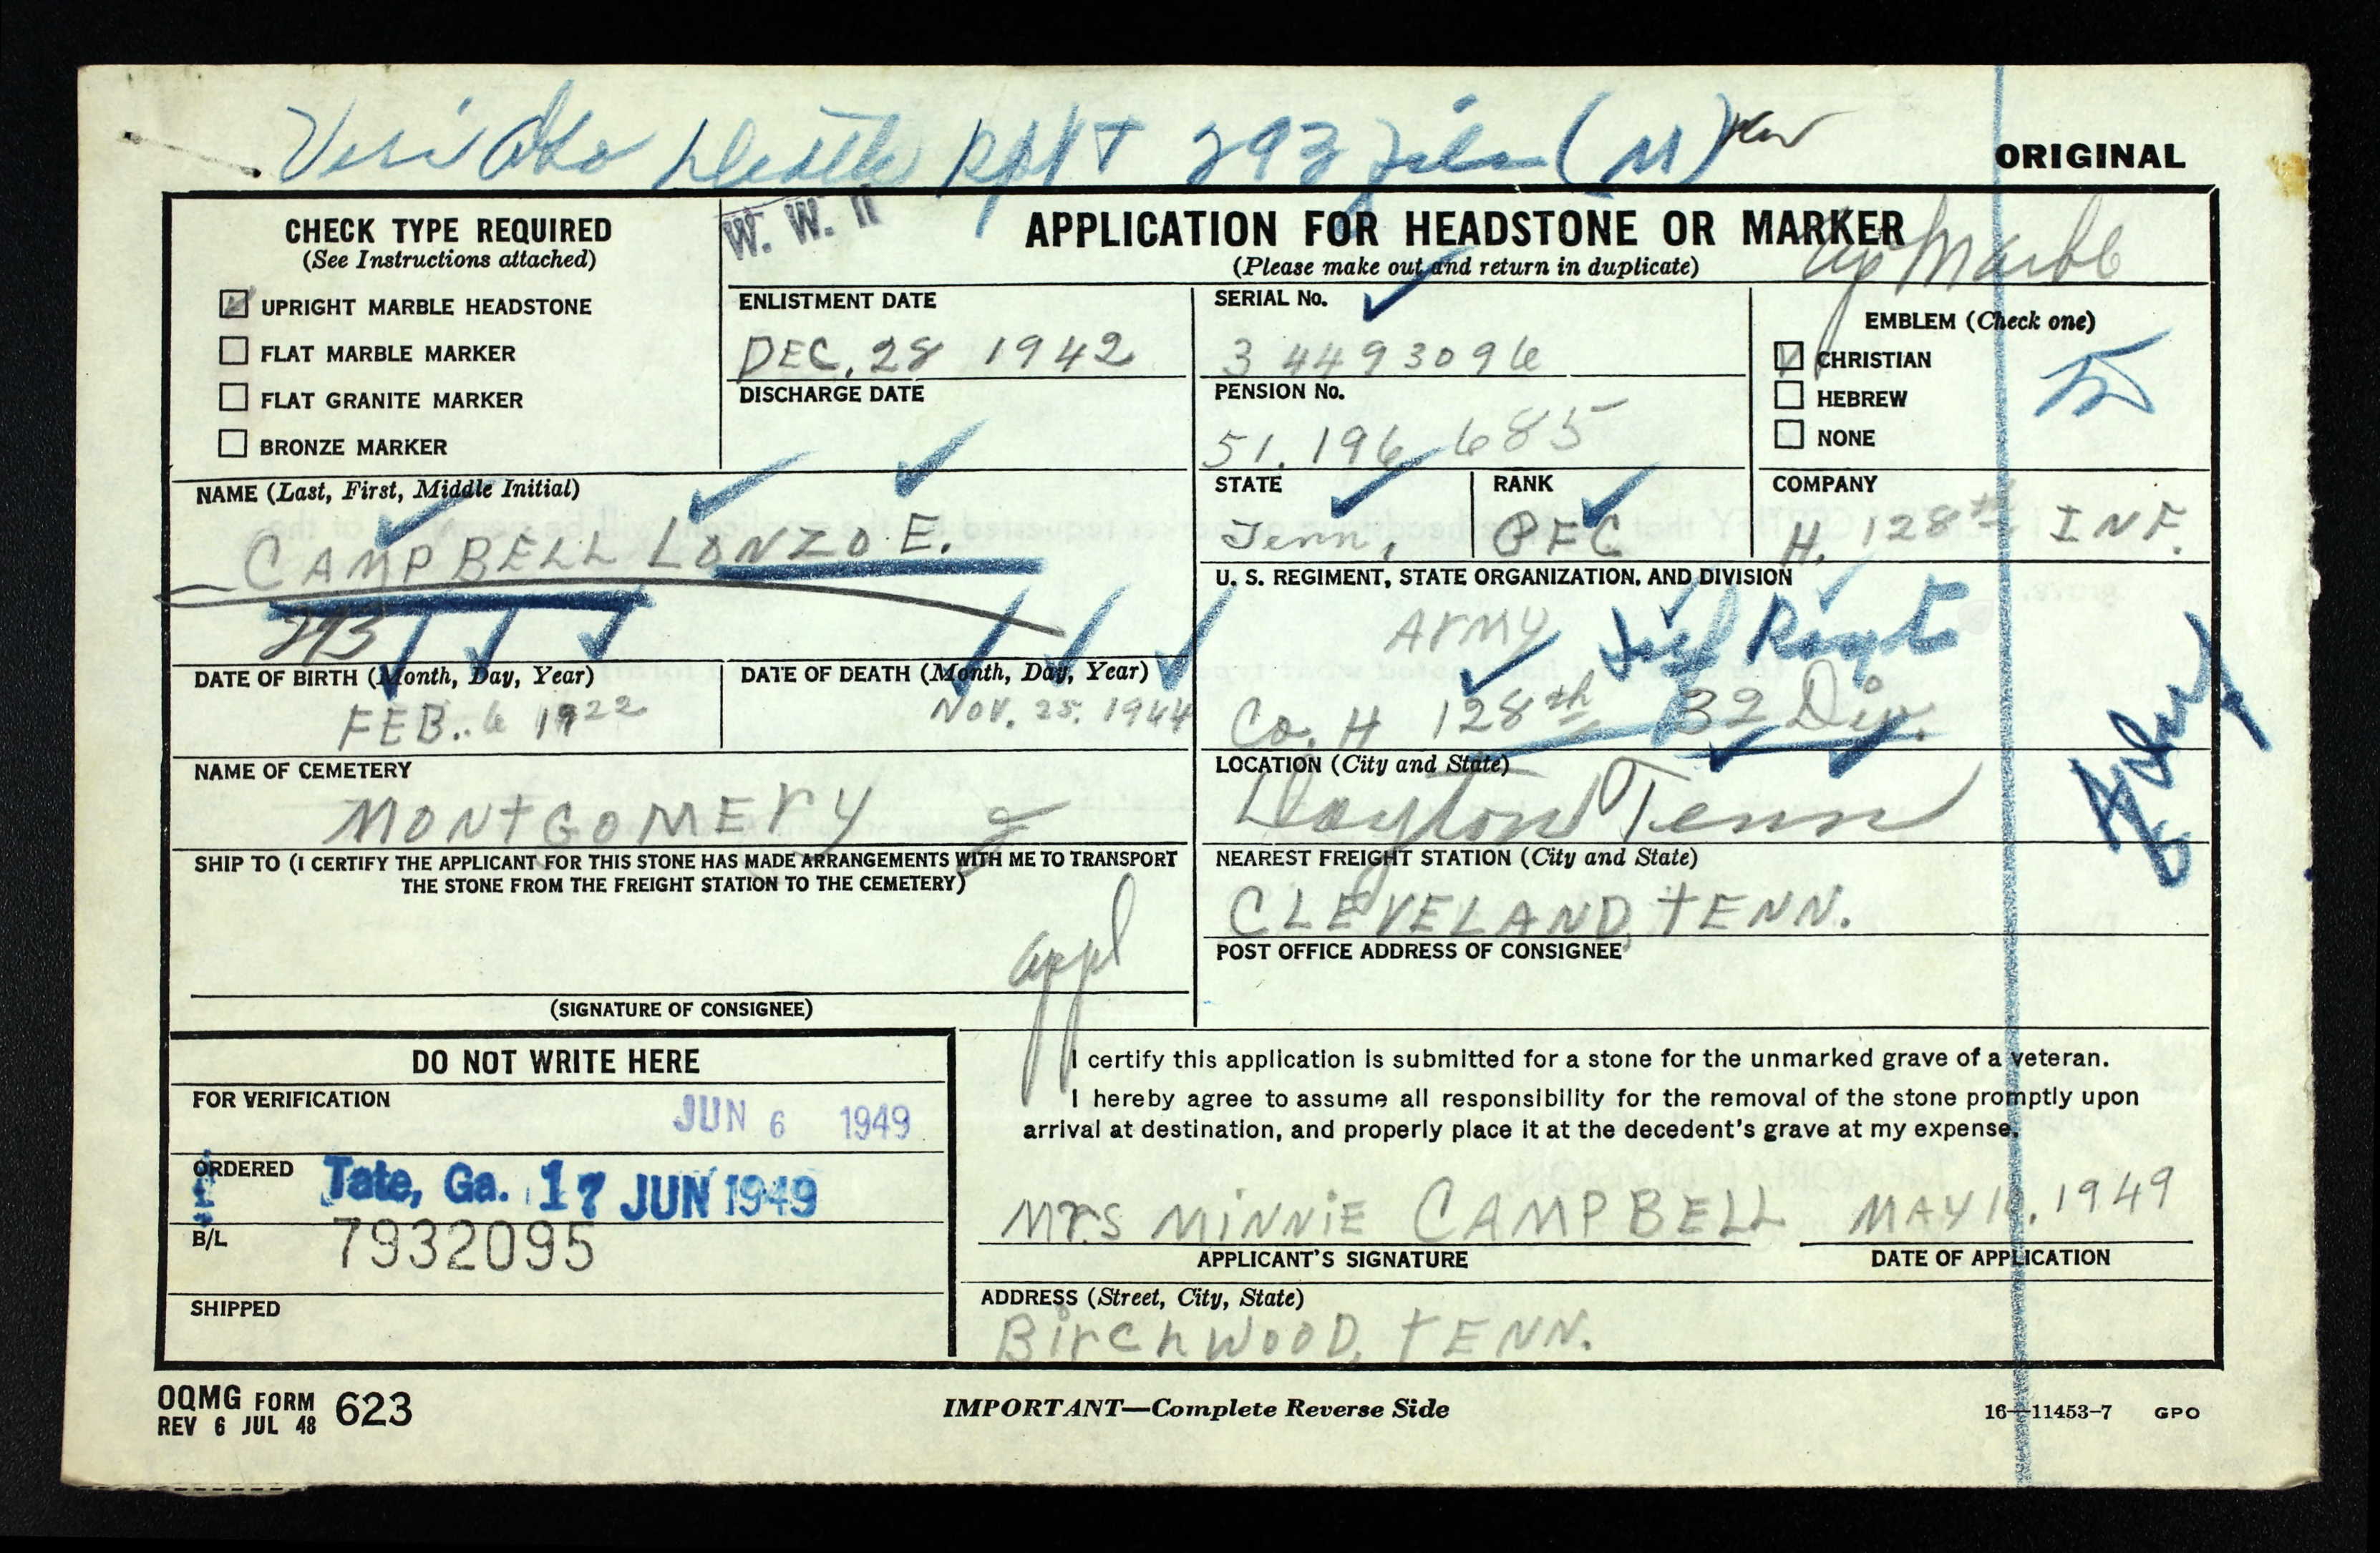 Death Rpt 293 file (M)
ORIGINAL
CHECK TYPE REQUIRED
(See Instructions attached)
UPRIGHT MARBLE HEADSTONE
FLAT MARBLE MARKER
FLAT GRANITE MARKER
BRONZE MARKER
W. W. II
APPLICATION FOR HEADSTONE OR MARKER
(Please make out and return in duplicate)
Up Marble
ENLISTMENT DATE
DEC. 28 1942
DISCHARGE DATE
SERIAL No.
3 4493096
PENSION No.
51.196 685
EMBLEM (Check one)
CHRISTIAN
HEBREW
NONE
NAME (Last, First, Middle Initial)
CAMPBELL LONZO E.
293
STATE
Tenn.
RANK
PFC
COMPANY
H. 128th INF.
U. S. REGIMENT, STATE ORGANIZATION, AND DIVISION
ArMy
Inf Regt
Co. H 128th 32 Div.
DATE OF BIRTH (Month, Day, Year)
FEB. 6 1922
DATE OF DEATH (Month, Day, Year)
NOV. 25. 1944
NAME OF CEMETERY
MONtGOMErY
LOCATION (City and State)
Dayton Tenn
SHIP TO (I CERTIFY THE APPLICANT FOR THIS STONE HAS MADE ARRANGEMENTS WITH ME TO TRANSPORT
THE STONE FROM THE FREIGHT STATION TO THE CEMETERY)
appl
(SIGNATURE OF CONSIGNEE)
NEAREST FREIGHT STATION (City and State)
CLEVELAND, tENN.
POST OFFICE ADDRESS OF CONSIGNEE
DO NOT WRITE HERE
FOR VERIFICATION
JUN 6 1949
ORDERED
Tate, Ga. 17 JUN 1949
B/L
7932095
SHIPPED
I certify this application is submitted for a stone for the unmarked grave of a veteran.
I hereby agree to assume all responsibility for the removal of the stone promptly upon
arrival at destination, and properly place it at the decedent's grave at my expense.
Mrs MiNNiE CAMPBELL
APPLICANT'S SIGNATURE
MAY 1949
DATE OF APPLICATION
ADDRESS (Street, City, State)
BirchWOOD, tENN.
OQMG FORM 623
REV 6 JUL 48
IMPORTANT—Complete Reverse Side
16—11453-7 GPO